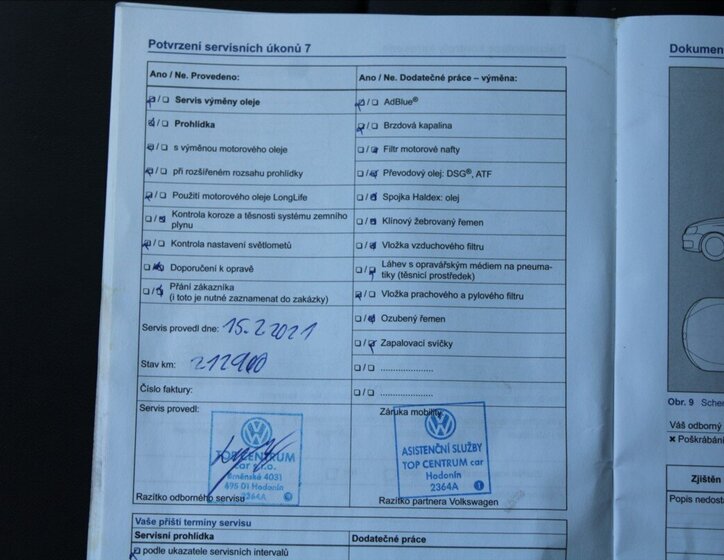 Potvrzení servisních úkonů 7
Ano / Ne. Provedeno:
☑/☐ Servis výměny oleje
☑/☐ Prohlídka
☑/☐ s výměnou motorového oleje
☑/☐ při rozšířeném rozsahu prohlídky
☑/☐ Použití motorového oleje LongLife
☐/☑ Kontrola koroze a těsnosti systému zemního
plynu
☑/☐ Kontrola nastavení světlometů
☐/☑ Doporučení k opravě
☐/☑ Přání zákazníka
(i toto je nutné zaznamenat do zakázky)
Servis provedl dne: 15.2.2021
Stav km: 212900
Číslo faktury:
Servis provedl:
TOP CENTRUM
car s.r.o.
Brněnská 4031
695 01 Hodonín
2364A
Razítko odborného servisu
Ano / Ne. Dodatečné práce – výměna:
☑/☐ AdBlue®
☑/☐ Brzdová kapalina
☐/☑ Filtr motorové nafty
☐/☑ Převodový olej: DSG®, ATF
☐/☑ Spojka Haldex: olej
☐/☑ Klínový žebrovaný řemen
☐/☑ Vložka vzduchového filtru
☐/☑ Láhev s opravářským médiem na pneuma-
tiky (těsnicí prostředek)
☑/☐ Vložka prachového a pylového filtru
☐/☑ Ozubený řemen
☐/☑ Zapalovací svíčky
☐/☐ ......................
☐/☐ ......................
Záruka mobility:
ASISTENČNÍ SLUŽBY
TOP CENTRUM car
Hodonín
2364A 1
Razítko partnera Volkswagen
Vaše příští termíny servisu
Servisní prohlídka
Dodatečné práce
podle ukazatele servisních intervalů
Dokumen
Obr. 9 Sche
Váš odborný
× Poškrábání
Zjištěn
Popis nedost